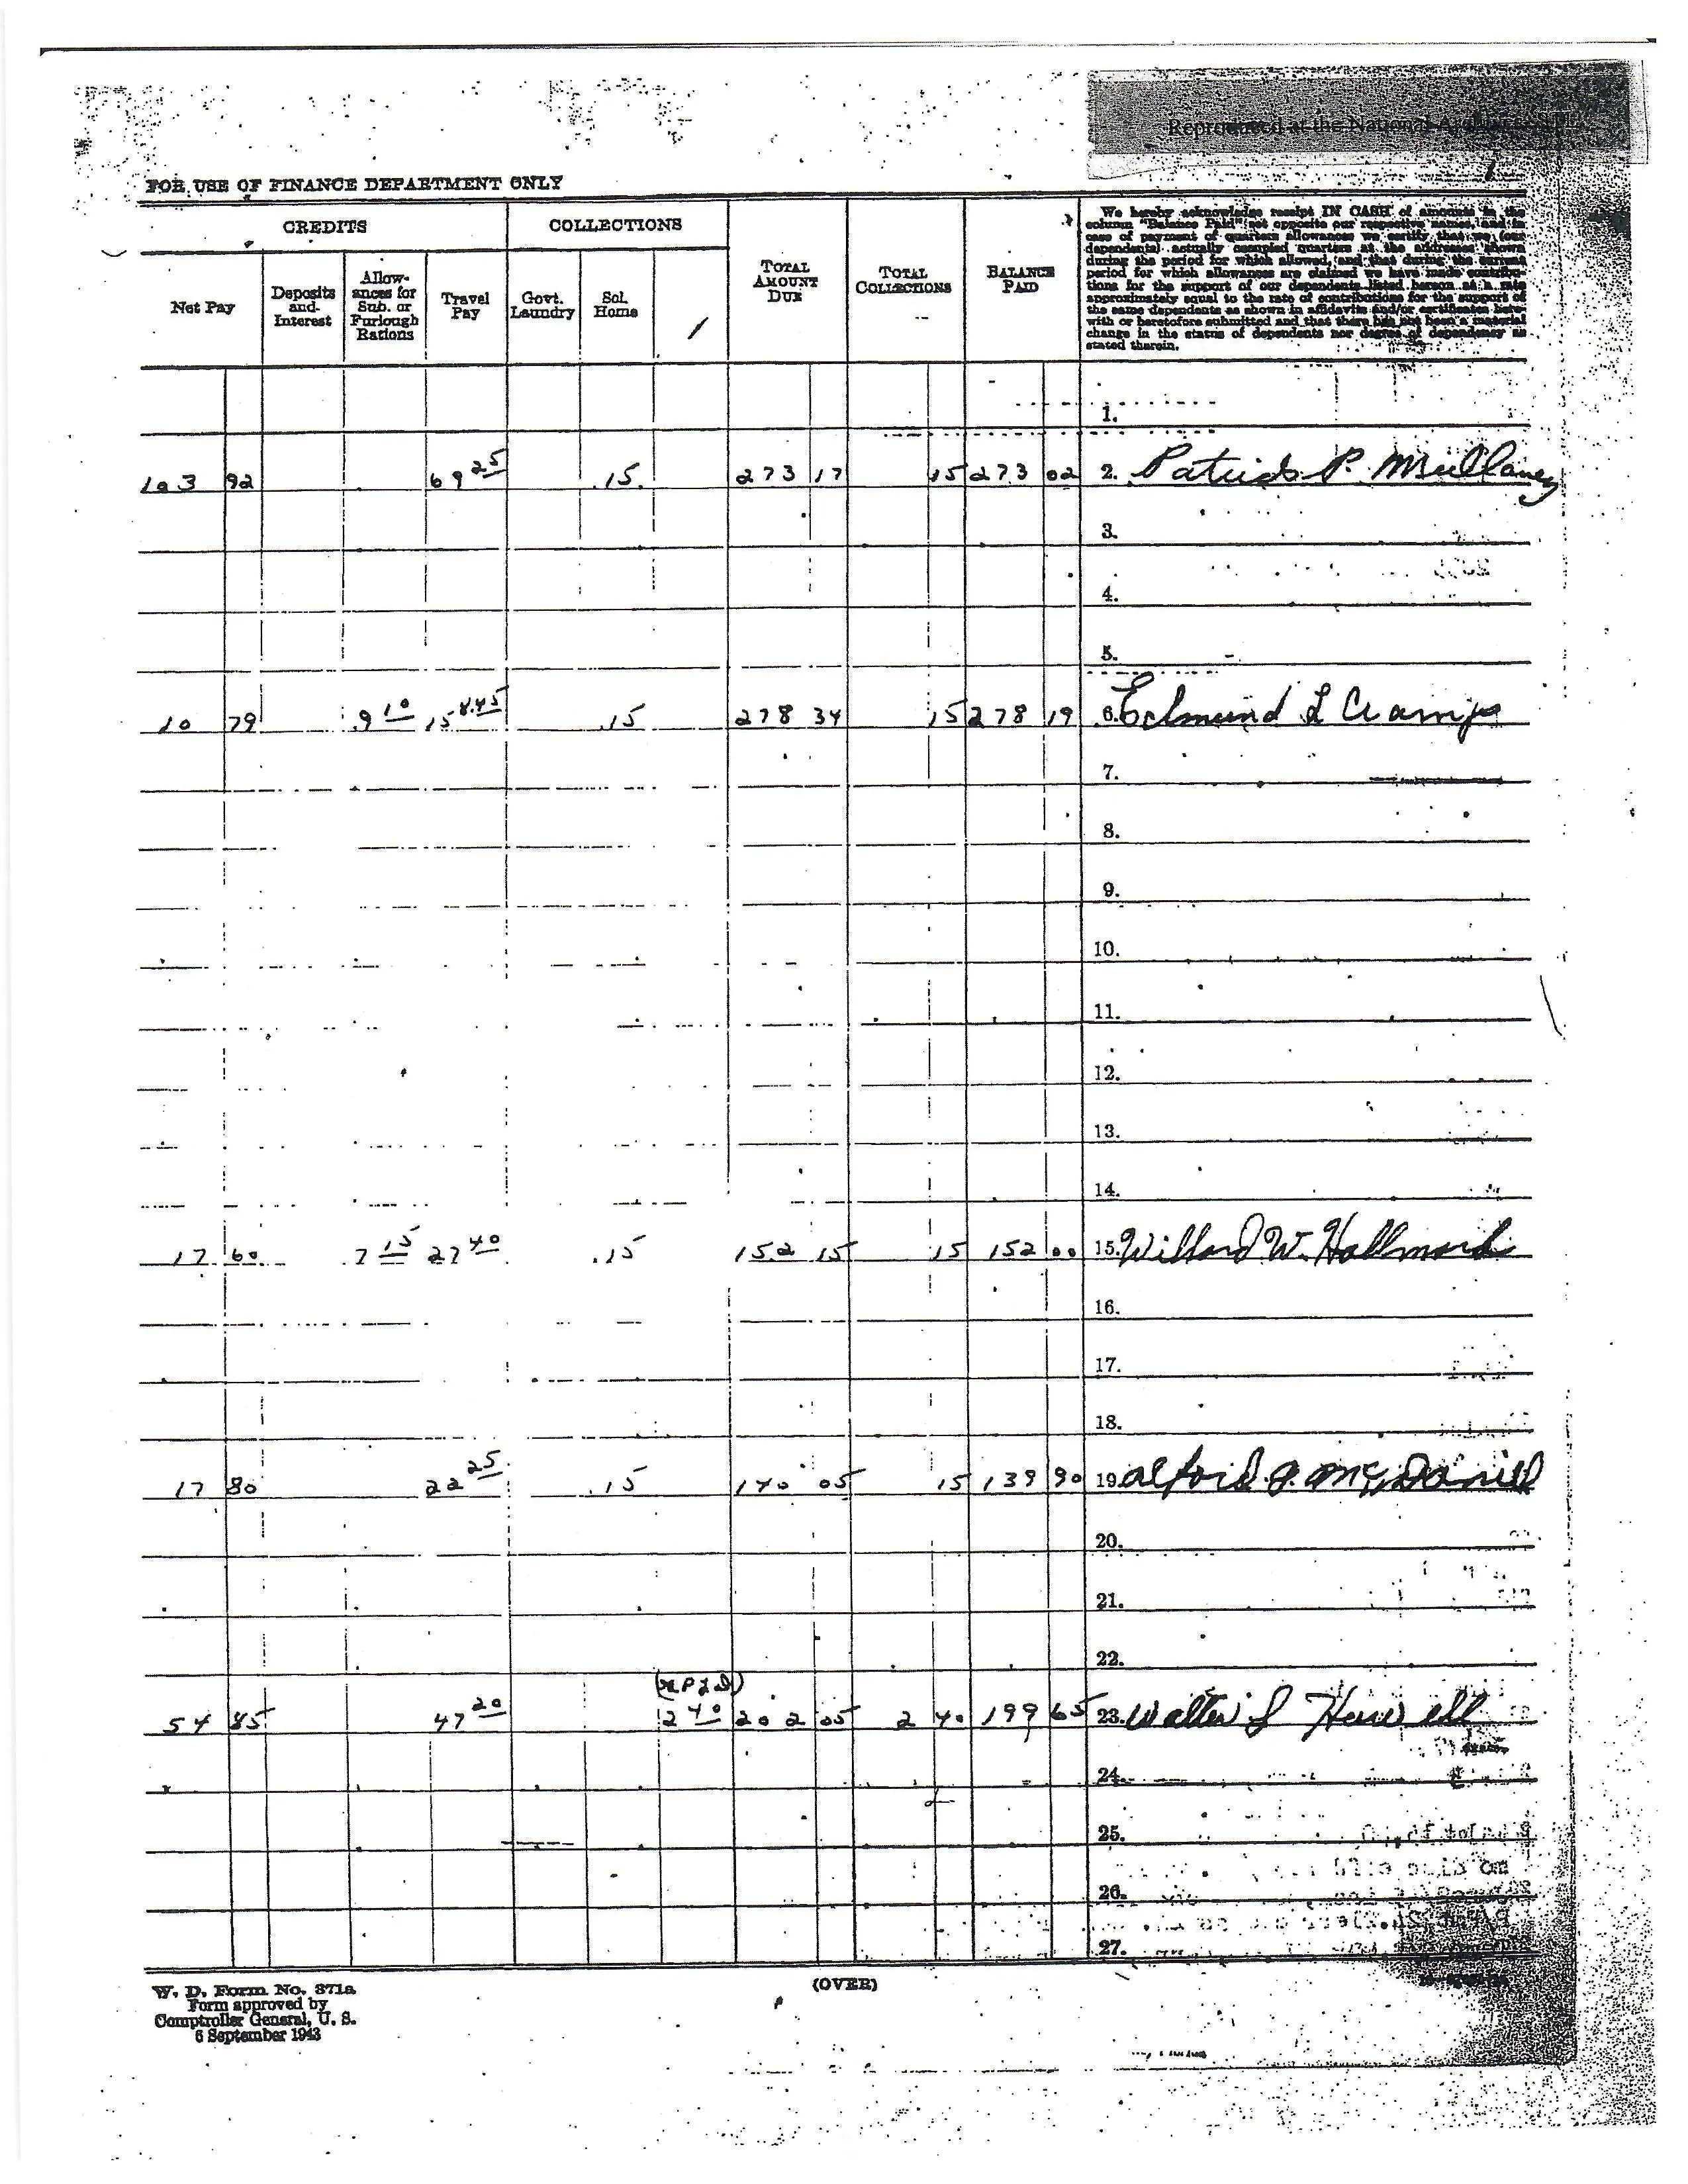 Reproduced at the National Archives
FOR USE OF FINANCE DEPARTMENT ONLY
CREDITS COLLECTIONS TOTAL AMOUNT DUE TOTAL COLLECTIONS BALANCE PAID
Net Pay Deposits and Interest Allow-ances for Sub. or Furlough Rations Travel Pay Govt. Laundry Sol. Home
We hereby acknowledge receipt IN CASH of amounts in the
column "Balance Paid" set opposite our respective names, and in
case of payment of quarters allowances we certify that we (our
dependents) actually occupied quarters at the addresses shown
during the period for which allowed, and that during the current
period for which allowances are claimed we have made contribu-
tions for the support of our dependents listed hereon at a rate
approximately equal to the rate of contributions for the support of
the same dependents as shown in affidavits and/or certificates here-
with or heretofore submitted and that there has not been a material
change in the status of dependents nor degree of dependency as
stated therein.
1.
103 92 69 25 .15 273 17 15 273 02 2. Patrick P. Mullaney
3.
4.
5.
10 79 9 10 15 8.45 .15 278 34 15 278 19 6. Edmund L Cramp
7.
8.
9.
10.
11.
12.
13.
14.
17 60 7 15 27 40 .15 152 15 15 152 00 15. Willard W. Hallmark
16.
17.
18.
17 80 22 25 .15 140 05 15 139 90 19. Alford J. McDaniel
20.
21.
22.
54 85 47 20 2 40 202 05 2 40 199 65 23. Walter L Harwell
24.
25.
26.
27.
W. D. Form No. 371a
Form approved by
Comptroller General, U. S.
6 September 1943
(OVER)